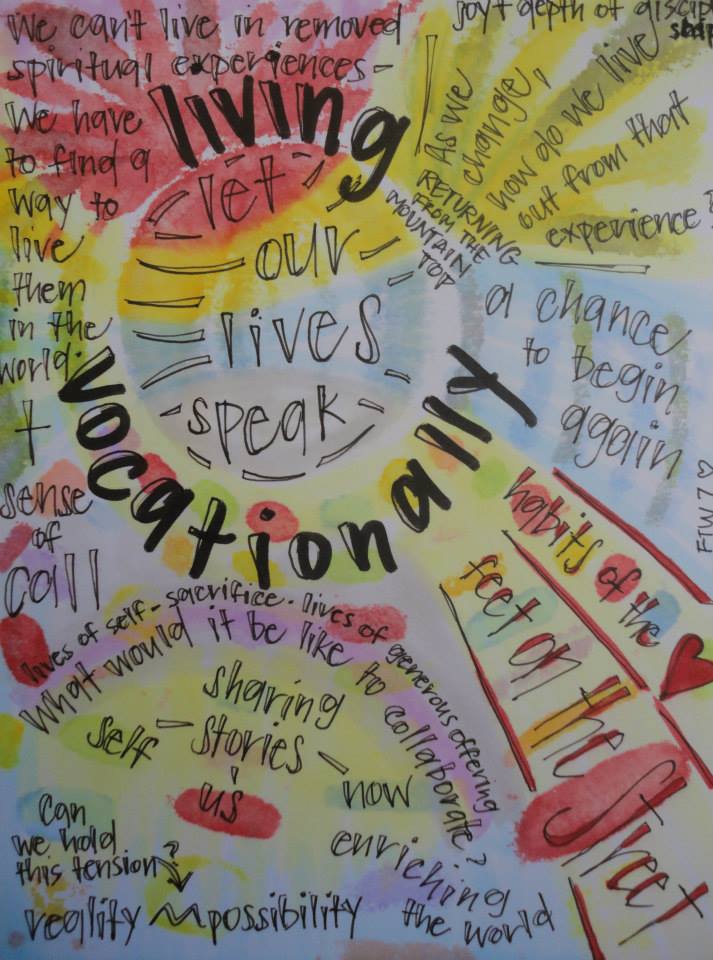 We can't live in removed
spiritual experiences-
We have
to find a
way to
live
them
in the
world.
joy + depth of
living
let
our
lives
speak
vocationally
As we
change,
how do we live
out from that
experience?
RETURNING
FROM THE
MOUNTAIN
TOP
a chance
to begin
again
FIW 7 ♡
sense
of
call
habits of the ♥
feet on the Street
lives of self-sacrifice. lives of generous offering
What would it be like to collaborate?
sharing
stories
self
us
now
can
we hold
this tension?
reality possibility
enriching
the world